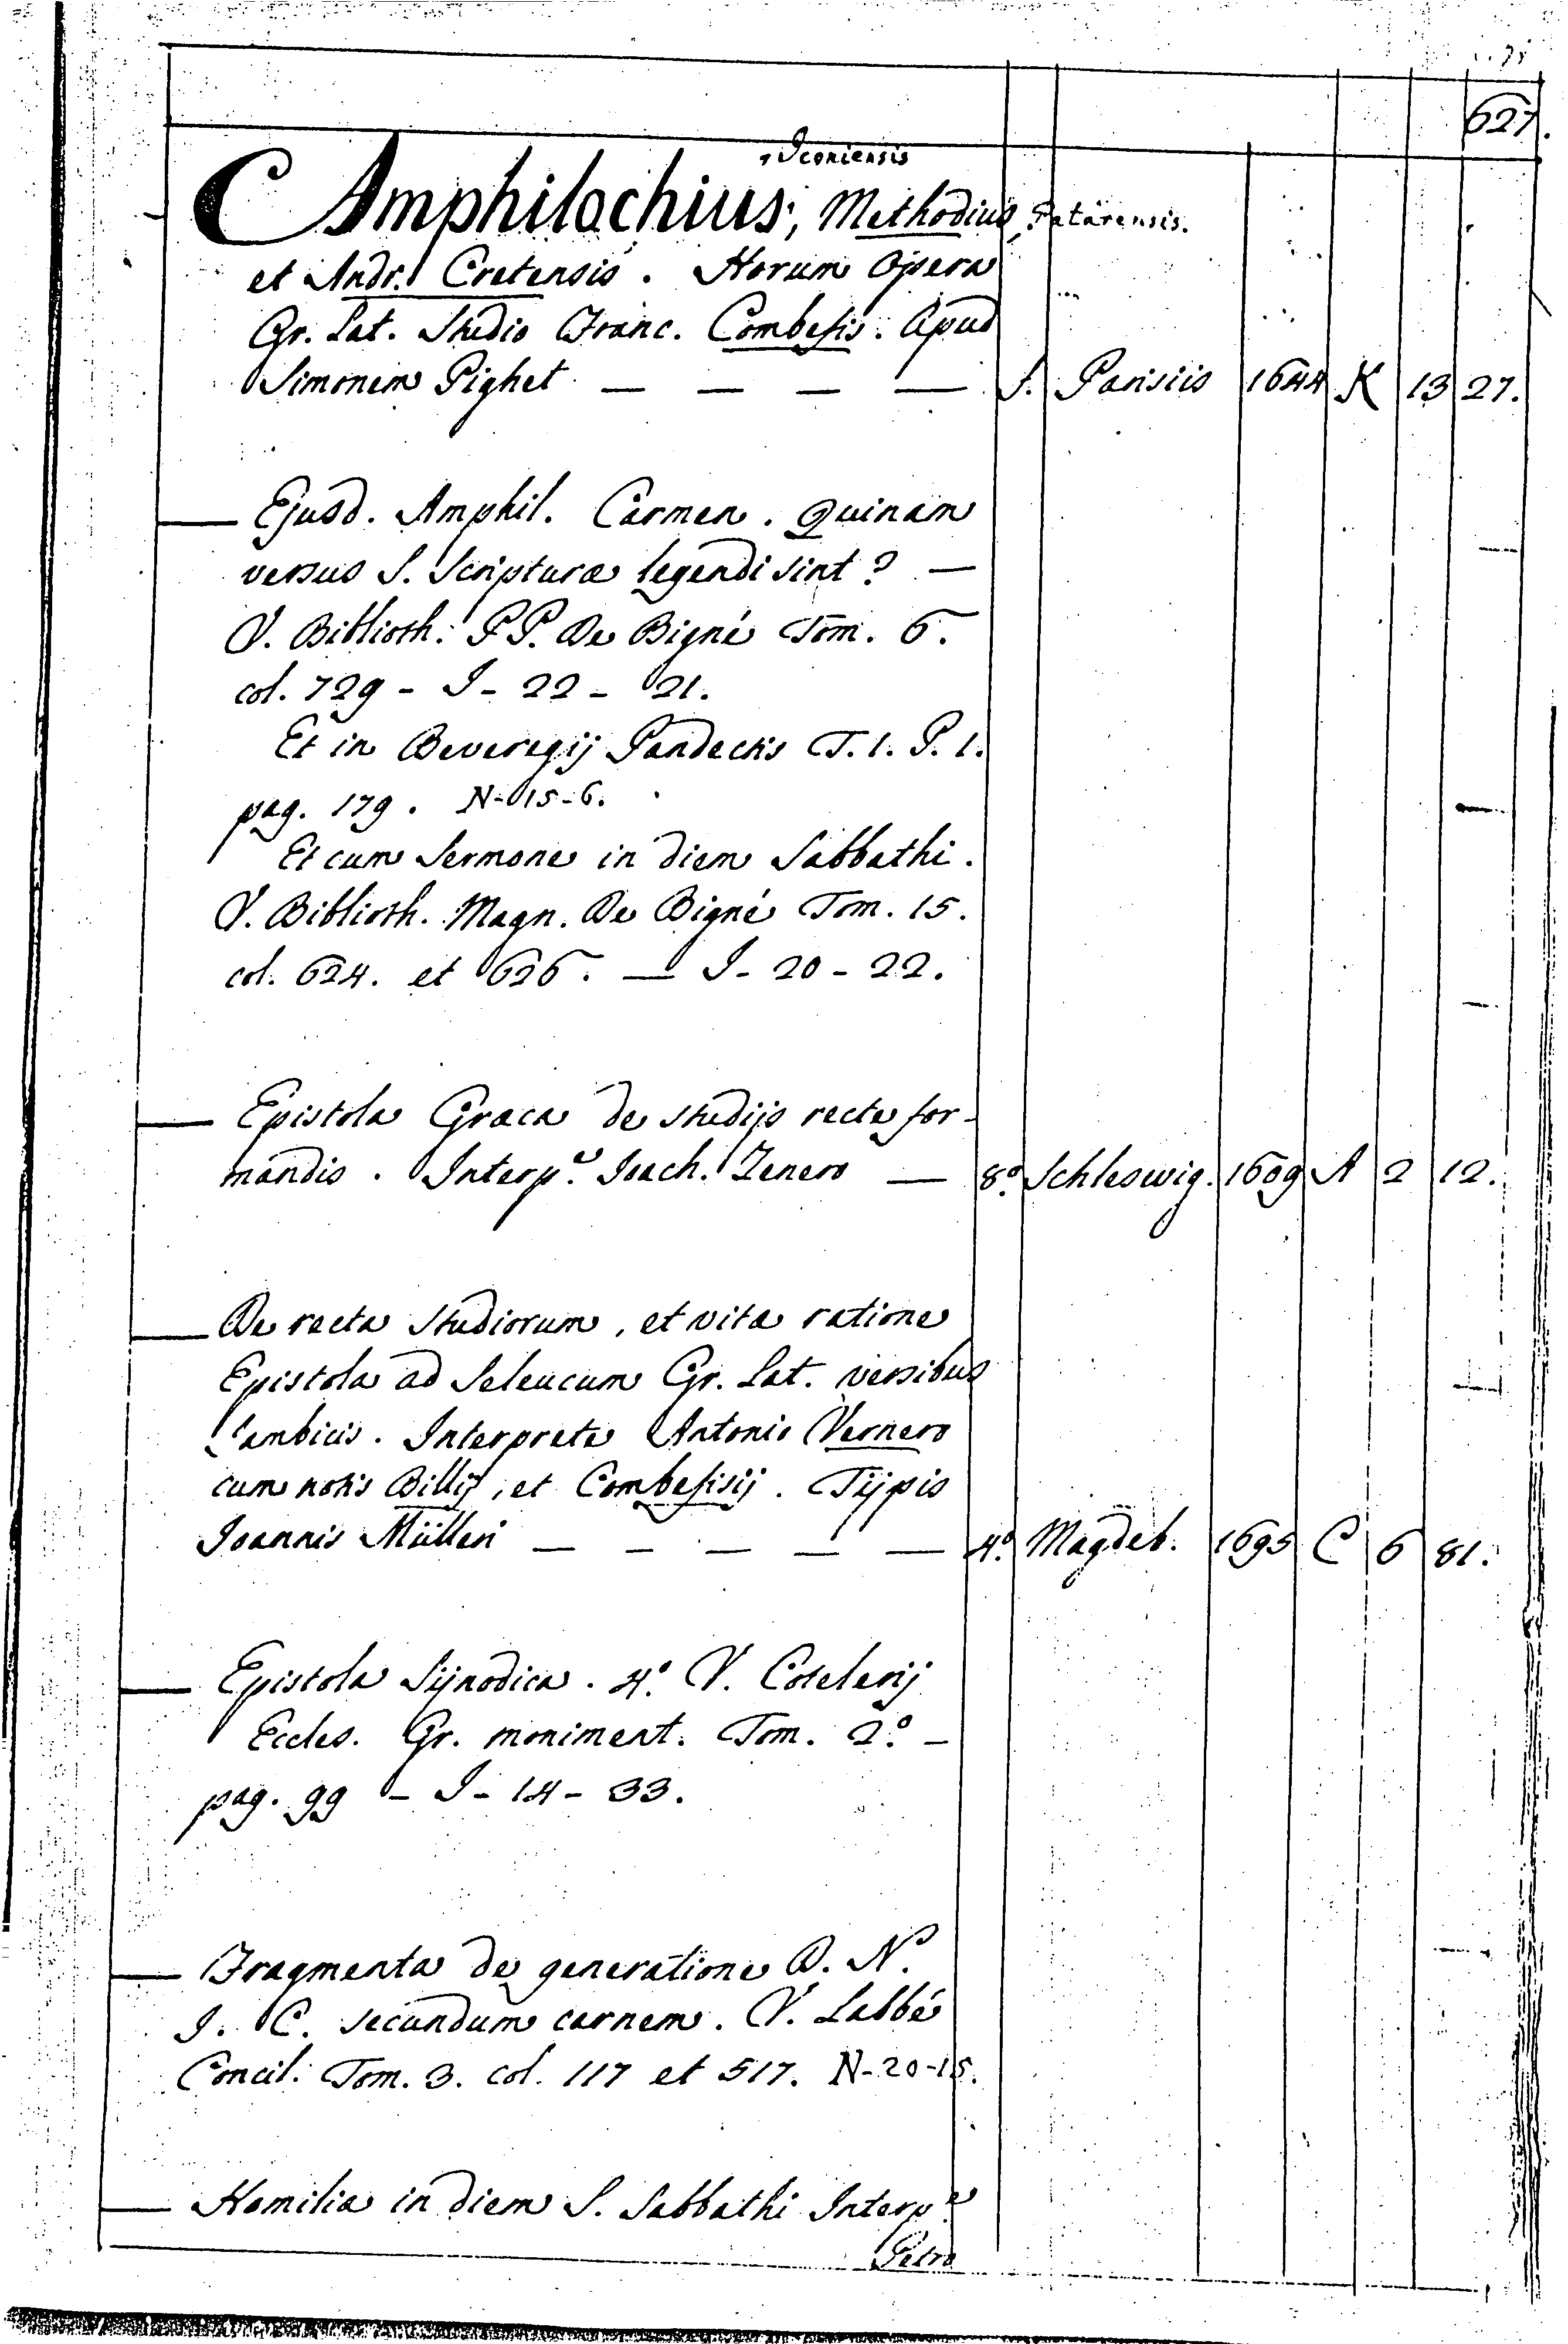 627.
, Iconiensis
Amphilochius; Methodius, Patarensis.
et Andr. Cretensis. Horum Opera
Gr. Lat. Studio Franc. Combefis. Apud
Simonem Pighet — — — — f. Parisiis 1644 K 13 27.
— Ejusd. Amphil. Carmen. Quinam
versus S. Scripturæ legendi sint? —
V. Biblioth. PP. De Bigné Tom. 6.
col. 729 - I - 22 - 21.
Et in Beveregij Pandectis T. 1. P. 1.
pag. 179. N-15-6.
Et cum Sermone in diem Sabbathi.
V. Biblioth. Magn. De Bigné Tom. 15.
col. 624. et 626. — I - 20 - 22.
— Epistola Græca de studijs recte for-
mandis. Interp.e Ioach. Zenero — 8.o Schleswig. 1609 A 2 12.
— De recta studiorum, et vitæ ratione
Epistola ad Seleucum Gr. Lat. versibus
Iambicis. Interprete Antonio Vernero
cum notis Billij, et Combefisij. Tijpis
Joannis Mülleri — — — — — 4.o Magdeb. 1695 C 6 81.
— Epistola Sijnodica. 4.o V. Cotelerij
Eccles. Gr. moniment. Tom. 2.o —
pag. 99 - I - 14 - 33.
— Fragmenta de generatione D. N.
J. C. secundum carnem. V. Labbé
Concil. Tom. 3. col. 117 et 517. N-20-15.
— Homilia in diem S. Sabbathi Interp.e
Petro